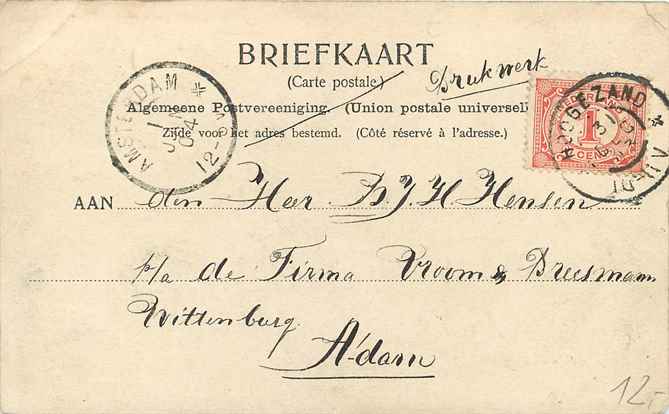 BRIEFKAART
(Carte postale)
Drukwerk
Algemeene Postvereeniging. (Union postale universelle)
Zijde voor het adres bestemd. (Côté réservé à l'adresse.)
AMSTERDAM
1
04
12-
HOOGEZAND
31
4
NEDERLAND
1
CENT
AAN den Heer B. J. H. Hensen
p/a de Firma Vroom & Dreesmann
Wittenburg
A'dam
12,-